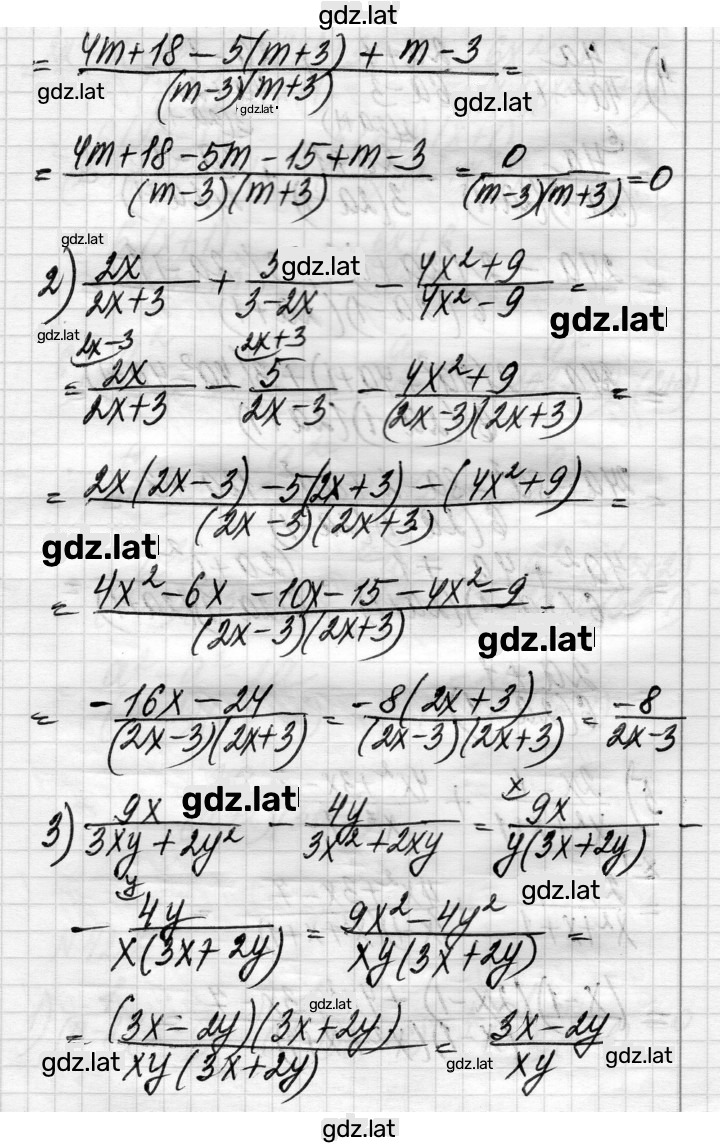 gdz.lat
= (4m+18 − 5(m+3) + m−3)/((m−3)(m+3)) =
gdz.lat gdz.lat gdz.lat
= (4m+18−5m−15+m−3)/((m−3)(m+3)) = 0/((m−3)(m+3)) = 0
gdz.lat
2) 2x/(2x+3) + /(3−2x) − (4x²+9)/(4x²−9) =
gdz.lat
gdz.lat gdz.lat
2x−3 2x+3
= 2x/(2x+3) − 5/(2x−3) − (4x²+9)/((2x−3)(2x+3)) =
= (2x(2x−3) −5(2x+3) − (4x²+9))/((2x−3)(2x+3)) =
gdz.lat
= (4x²−6x −10x−15−4x²−9)/((2x−3)(2x+3)) =
gdz.lat
= (−16x−24)/((2x−3)(2x+3)) = −8(2x+3)/((2x−3)(2x+3)) = −8/(2x−3)
gdz.lat
3) 9x/(3xy+2y²) − 4y/(3x²+2xy) = x 9x/(y(3x+2y)) −
gdz.lat
− y 4y/(x(3x+2y)) = (9x²−4y²)/(xy(3x+2y)) =
gdz.lat
= ((3x−2y)(3x+2y))/(xy(3x+2y)) = (3x−2y)/(xy)
gdz.lat gdz.lat gdz.lat
gdz.lat